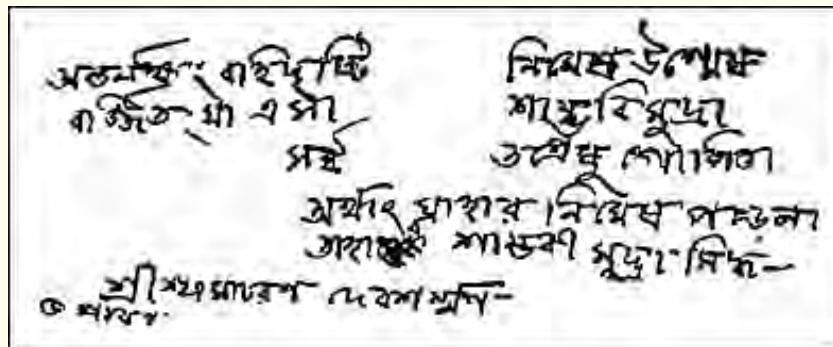 অন্তর্লক্ষ্যং বহির্দৃষ্টি নিমেষ উন্মেষ
বর্জিত এসা শাম্ভবি মুদ্রা
সর্ব্ব তন্ত্রেষু গোপিতা
অর্থাৎ যাহার নিমেষ পড়েনা
তাহার শাম্ভবী মুদ্রা সিদ্ধ—
শ্রী শ্যামাচরণ দেবশর্ম্মণ—